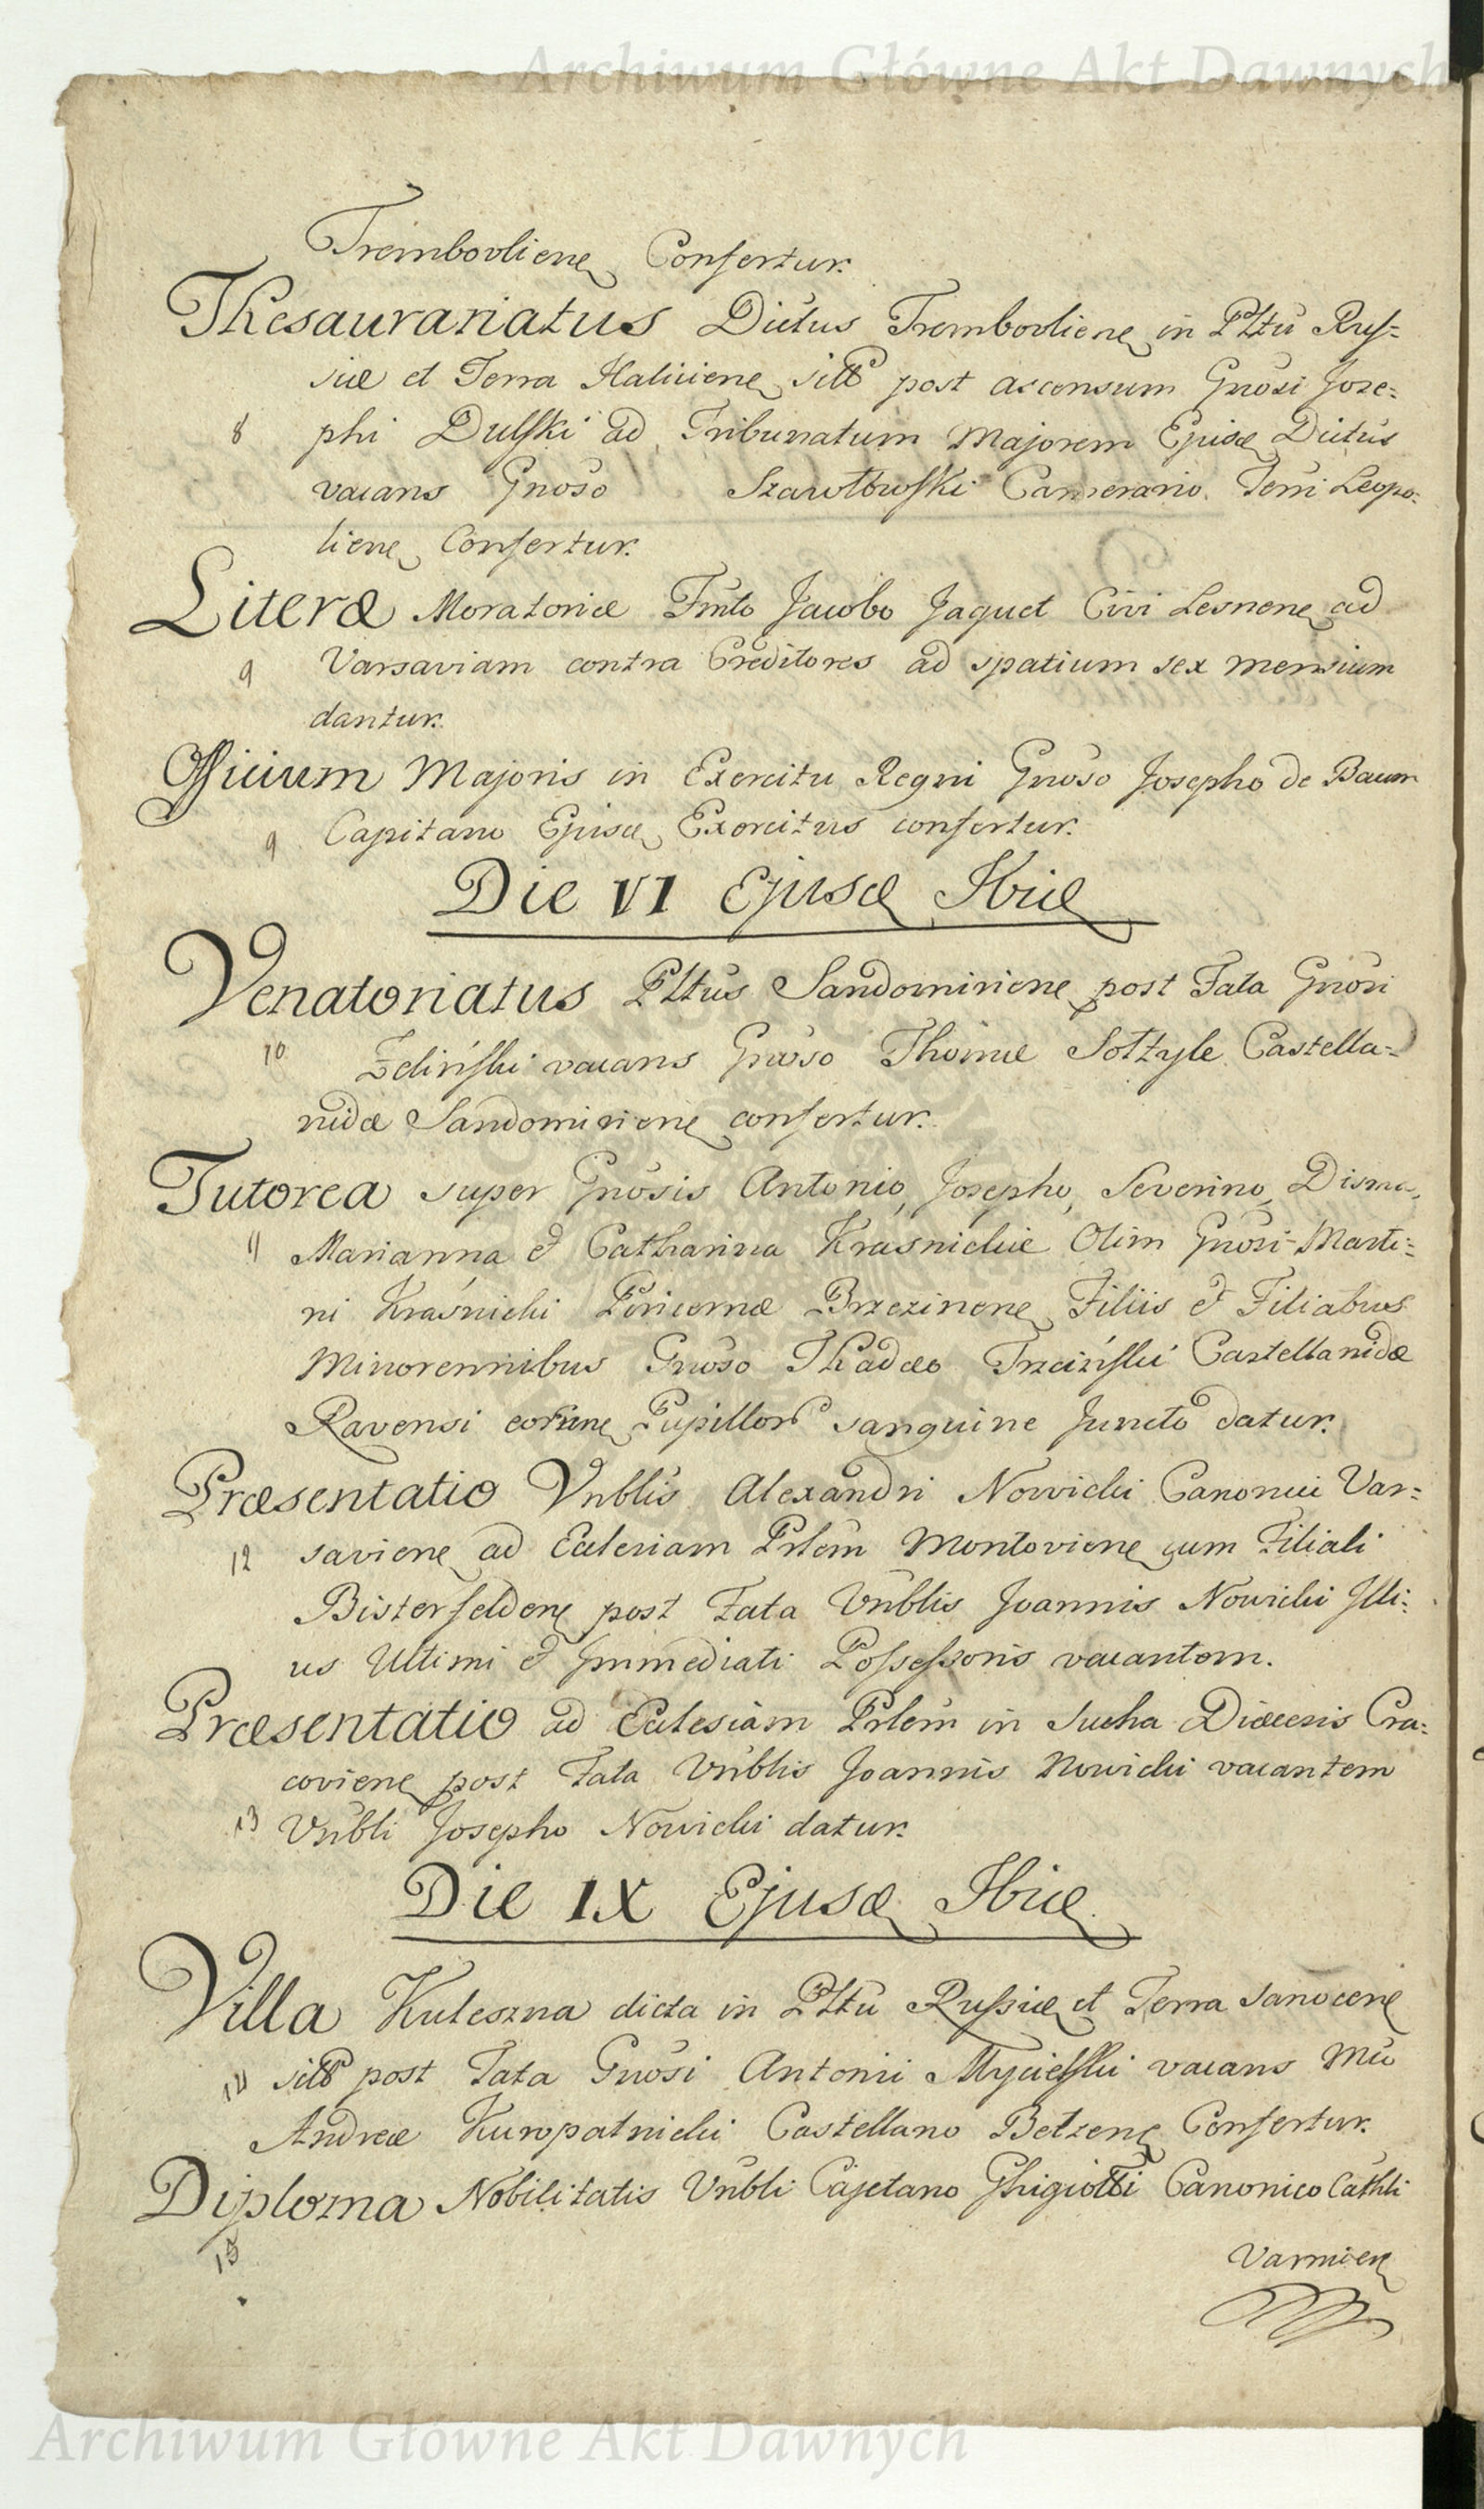 Archiwum Główne Akt Dawnych
Trembovliene Confertur.
Thesaurariatus Dictus Trembovliene in Plttu Rus=
siæ et Terra Haliciene sitt post ascensum Gnosi Jose=
8 phi Dulski ad Tribunatum Majorem Ejusd Dictus
vacans Gnoso Szawłowski Camerario Terri Leopo=
liene Confertur.
Literæ Moratoriæ Fmto Jacobo Jaquet Civi Lesnene ad
9 Varsaviam contra Creditores ad spatium sex mensium
dantur.
Officium Majoris in Exercitu Regni Gnoso Josepho de Baum
9 Capitano Ejusd Exercitus confertur.
Die VI Ejusd Ibid
Venatoriatus Plttus Sandomiriene post Fata Gnosi
10 Zeliński vacans Gnoso Thomæ Sołtyk Castella=
nidæ Sandomiriene confertur.
Tutorea super Gnosis Antonio, Josepho, Severino, Disma,
11 Marianna & Catharina Kraśnickie Olim Gnosi Marti=
ni Kraśnicki Pincernæ Brzezinene Filiis & Filiabus
Minorennibus Gnoso Thadæo Trzciński Castellanidæ
Ravensi eorune Pupillor sanguine Juncto datur.
Præsentatio Vnblis Alexandri Nowicki Canonici Var=
12 saviene ad Ecclesiam Prlem Montoviene cum Filiali
Bisterfeldene post Fata Vnblis Joannis Nowicki Illi=
us Ultimi & Immediati Possessoris vacantem.
Præsentatio ad Ecclesiam Prlem in Sucha Diæcesis Cra=
coviene post Fata Vnblis Joannis Nowicki vacantem
13 Vnbli Josepho Nowicki datur.
Die IX Ejusd Ibid
Villa Kuleszna dicta in Plttu Russiæ et Terra Sanocene
14 sitt post Fata Gnosi Antonii Mycielski vacans Mco
Andreæ Kuropatnicki Castellano Bełzene Confertur.
Diploma Nobilitatis Vnbli Cajetano Ghigiotti Canonico Cathli
15
Varmien
Archiwum Główne Akt Dawnych